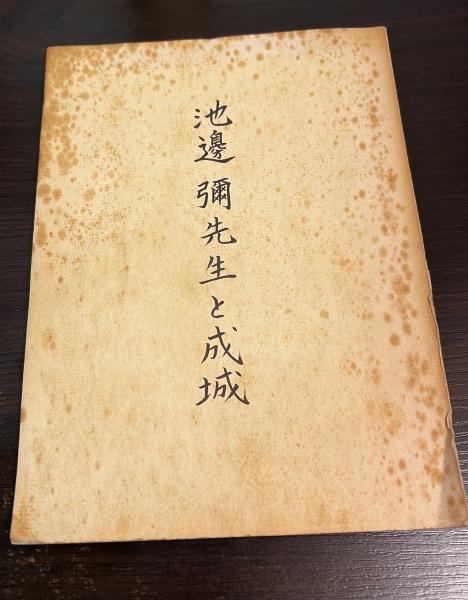 池邊 彌先生と成城